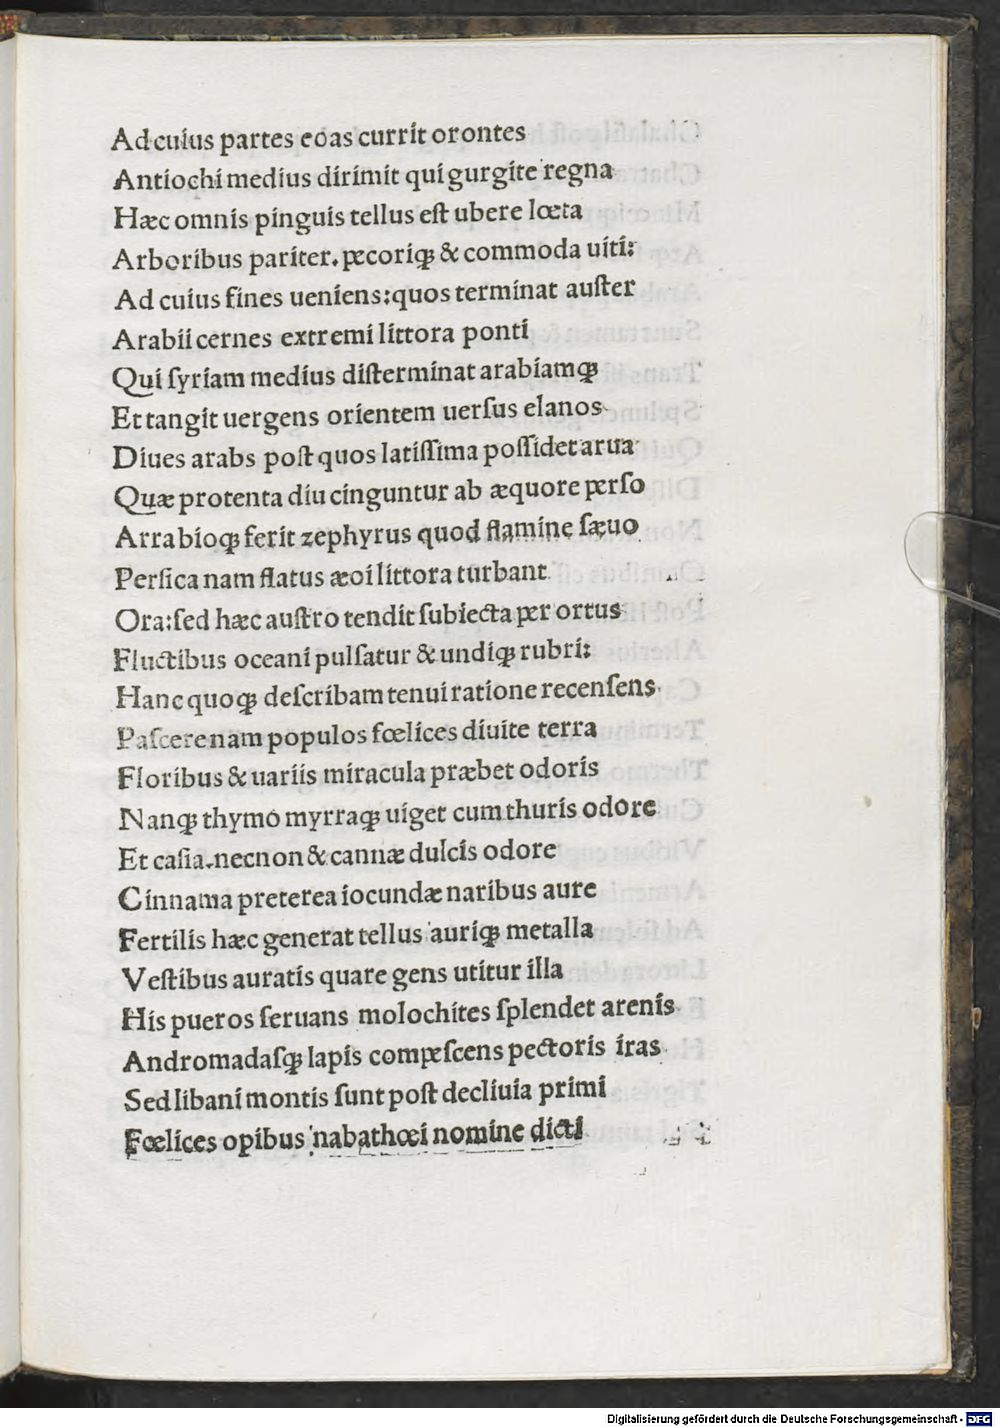 Ad cuius partes eoas currit orontes
Antiochi medius dirimit qui gurgite regna
Hæc omnis pinguis tellus eſt ubere lœta
Arboribus pariter. pecoriqꝫ & commoda uiti:
Ad cuius fines ueniens: quos terminat auſter
Arabii cernes extremi littora ponti
Qui ſyriam medius diſterminat arabiamqꝫ
Et tangit uergens orientem uerſus elanos
Diues arabs poſt quos latiſſima poſſidet arua
Quæ protenta diu cinguntur ab æquore perſo
Arrabioqꝫ ferit zephyrus quod flamine ſæuo
Perſica nam flatus æoi littora turbant
Ora: ſed hæc auſtro tendit ſubiecta per ortus
Fluctibus oceani pulſatur & undiqꝫ rubri:
Hanc quoqꝫ deſcribam tenui ratione recenſens
Paſcere nam populos fœlices diuite terra
Floribus & uariis miracula præbet odoris
Nanqꝫ thymo myrraqꝫ uiget cum thuris odore
Et caſia. necnon & cannæ dulcis odore
Cinnama preterea iocundæ naribus aure
Fertilis hæc generat tellus auriqꝫ metalla
Veſtibus auratis quare gens utitur illa
His pueros ſeruans molochites ſplendet arenis
Andromadaſqꝫ lapis compeſcens pectoris iras
Sed libani montis ſunt poſt decliuia primi
Fœlices opibus nabathœi nomine dicti
Digitalisierung gefördert durch die Deutsche Forschungsgemeinschaft - DFG